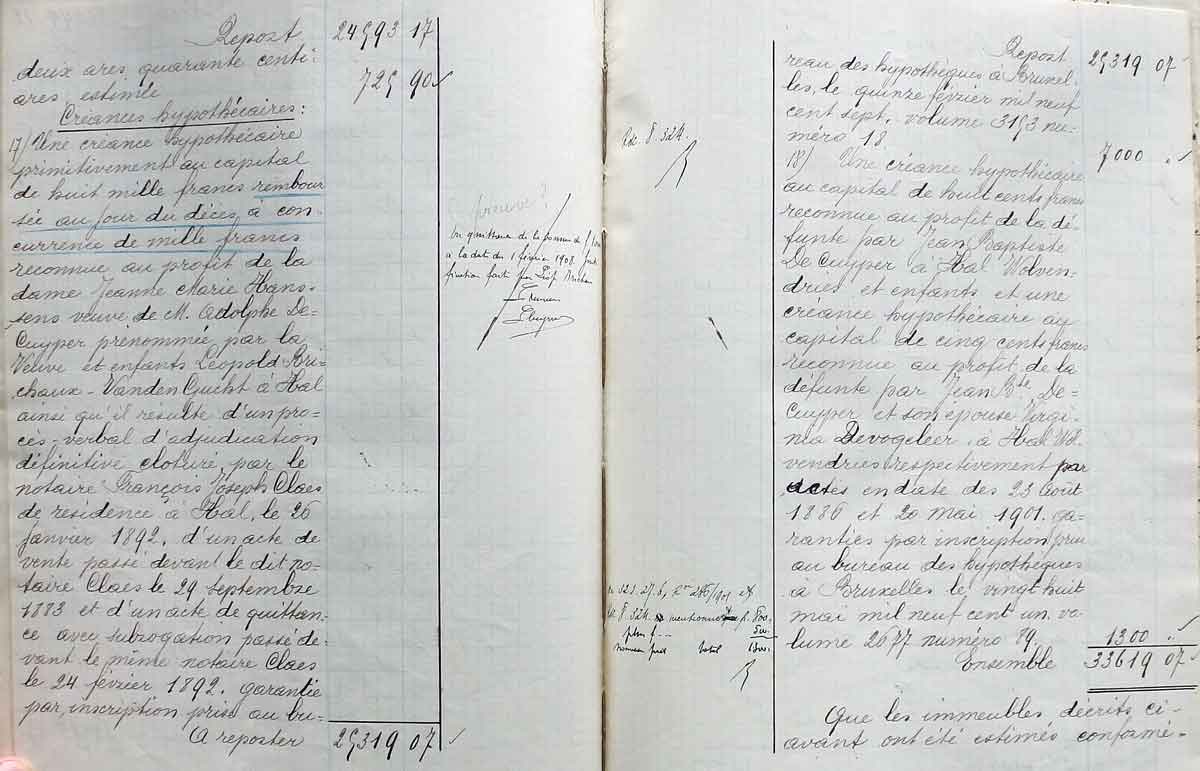 Report 24593 17
deux ares quarante centi-
ares estimée 725 90
Créances hypothécaires:
17) Une créance hypothécaire
primitivement au capital
de huit mille francs rembour
sée au jour du décès à con-
currence de mille francs
reconnue au profit de la
dame Jeanne Marie Hans-
sens veuve de M. Adolphe De-
Cuyper prénommée par la
Veuve et enfants Léopold Bri-
chaux-Vanden à Hal
ainsi qu'il résulte d'un pro-
cès-verbal d'adjudication
définitive cloturé par le
notaire François Joseph Claes
de résidence à Hal, le 26
janvier 1892, d'un acte de
vente passé devant le dit no-
taire Claes le 29 septembre
1883 et d'un acte de quittan-
ce avec subrogation passé de-
vant le même notaire Claes
le 24 février 1892. garantie
par inscription prise au bu-
A reporter 25319 07
preuve?
quittance de la somme de
à la date du 1 février 1908.
Report 25319 07
reau des hypothèques à Bruxel-
les, le quinze février mil neuf
cent sept, volume 3153 nu-
méro 18. 7000
18) Une créance hypothécaire
au capital de huit cents francs
reconnue au profit de la dé-
funte par Jean Baptiste
DeCuyper à Hal Wolven-
dries et enfants et une
créance hypothécaire au
capital de cinq cents francs
reconnue au profit de la
défunte par Jean Bte De-
Cuyper et son épouse Virgi-
nia Devogeleer à Hal Wol-
vendries respectivement par
actes en date des 23 août
1886 et 20 mai 1901. ga-
ranties par inscription prise
au bureau des hypothèques
à Bruxelles le vingt huit
mai mil neuf cent un vo-
lume 2677 numéro 89, 1300
Ensemble 33619 07
Que les immeubles, décrits ci-
avant ont été estimés conformé-
8 324.
8 324 mentionne
total